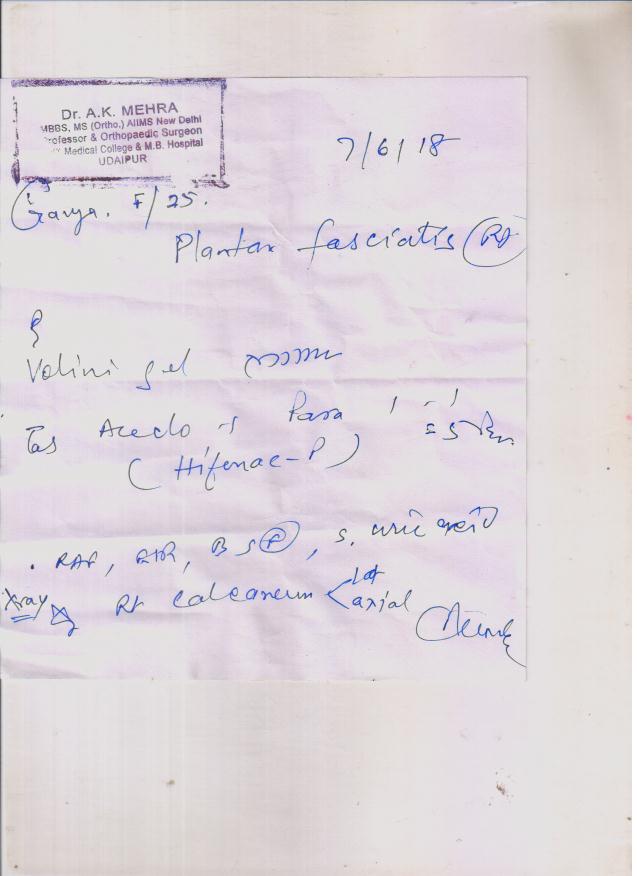 Dr. A.K. MEHRA
MBBS, MS (Ortho.) AIIMS New Delhi
Professor & Orthopaedic Surgeon
Medical College & M.B. Hospital
UDAIPUR
7/6/18
F/25.
Plantar fasciatis (Rt)
Volini gel
Tas Aceclo - Para 1 - 1
(Hifenac-P)
. RAF, ESR, B S (F), S. uric acid
Xray Rt calcaneum < Lat
axial